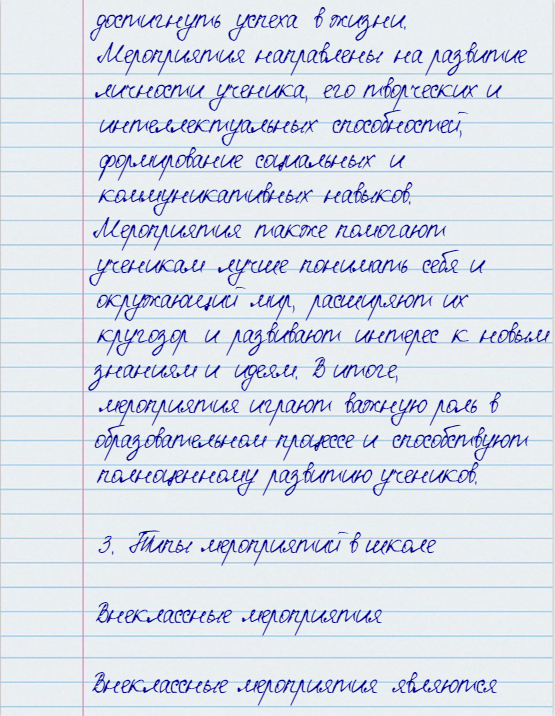 достигнуть успеха в жизни.
Мероприятия направлены на развитие
личности ученика, его творческих и
интеллектуальных способностей,
формирование социальных и
коммуникативных навыков.
Мероприятия также помогают
ученикам лучше понимать себя и
окружающий мир, расширяют их
кругозор и развивают интерес к новым
знаниям и идеям. В итоге,
мероприятия играют важную роль в
образовательном процессе и способствуют
полноценному развитию учеников.
3. Типы мероприятий в школе
Внеклассные мероприятия
Внеклассные мероприятия являются